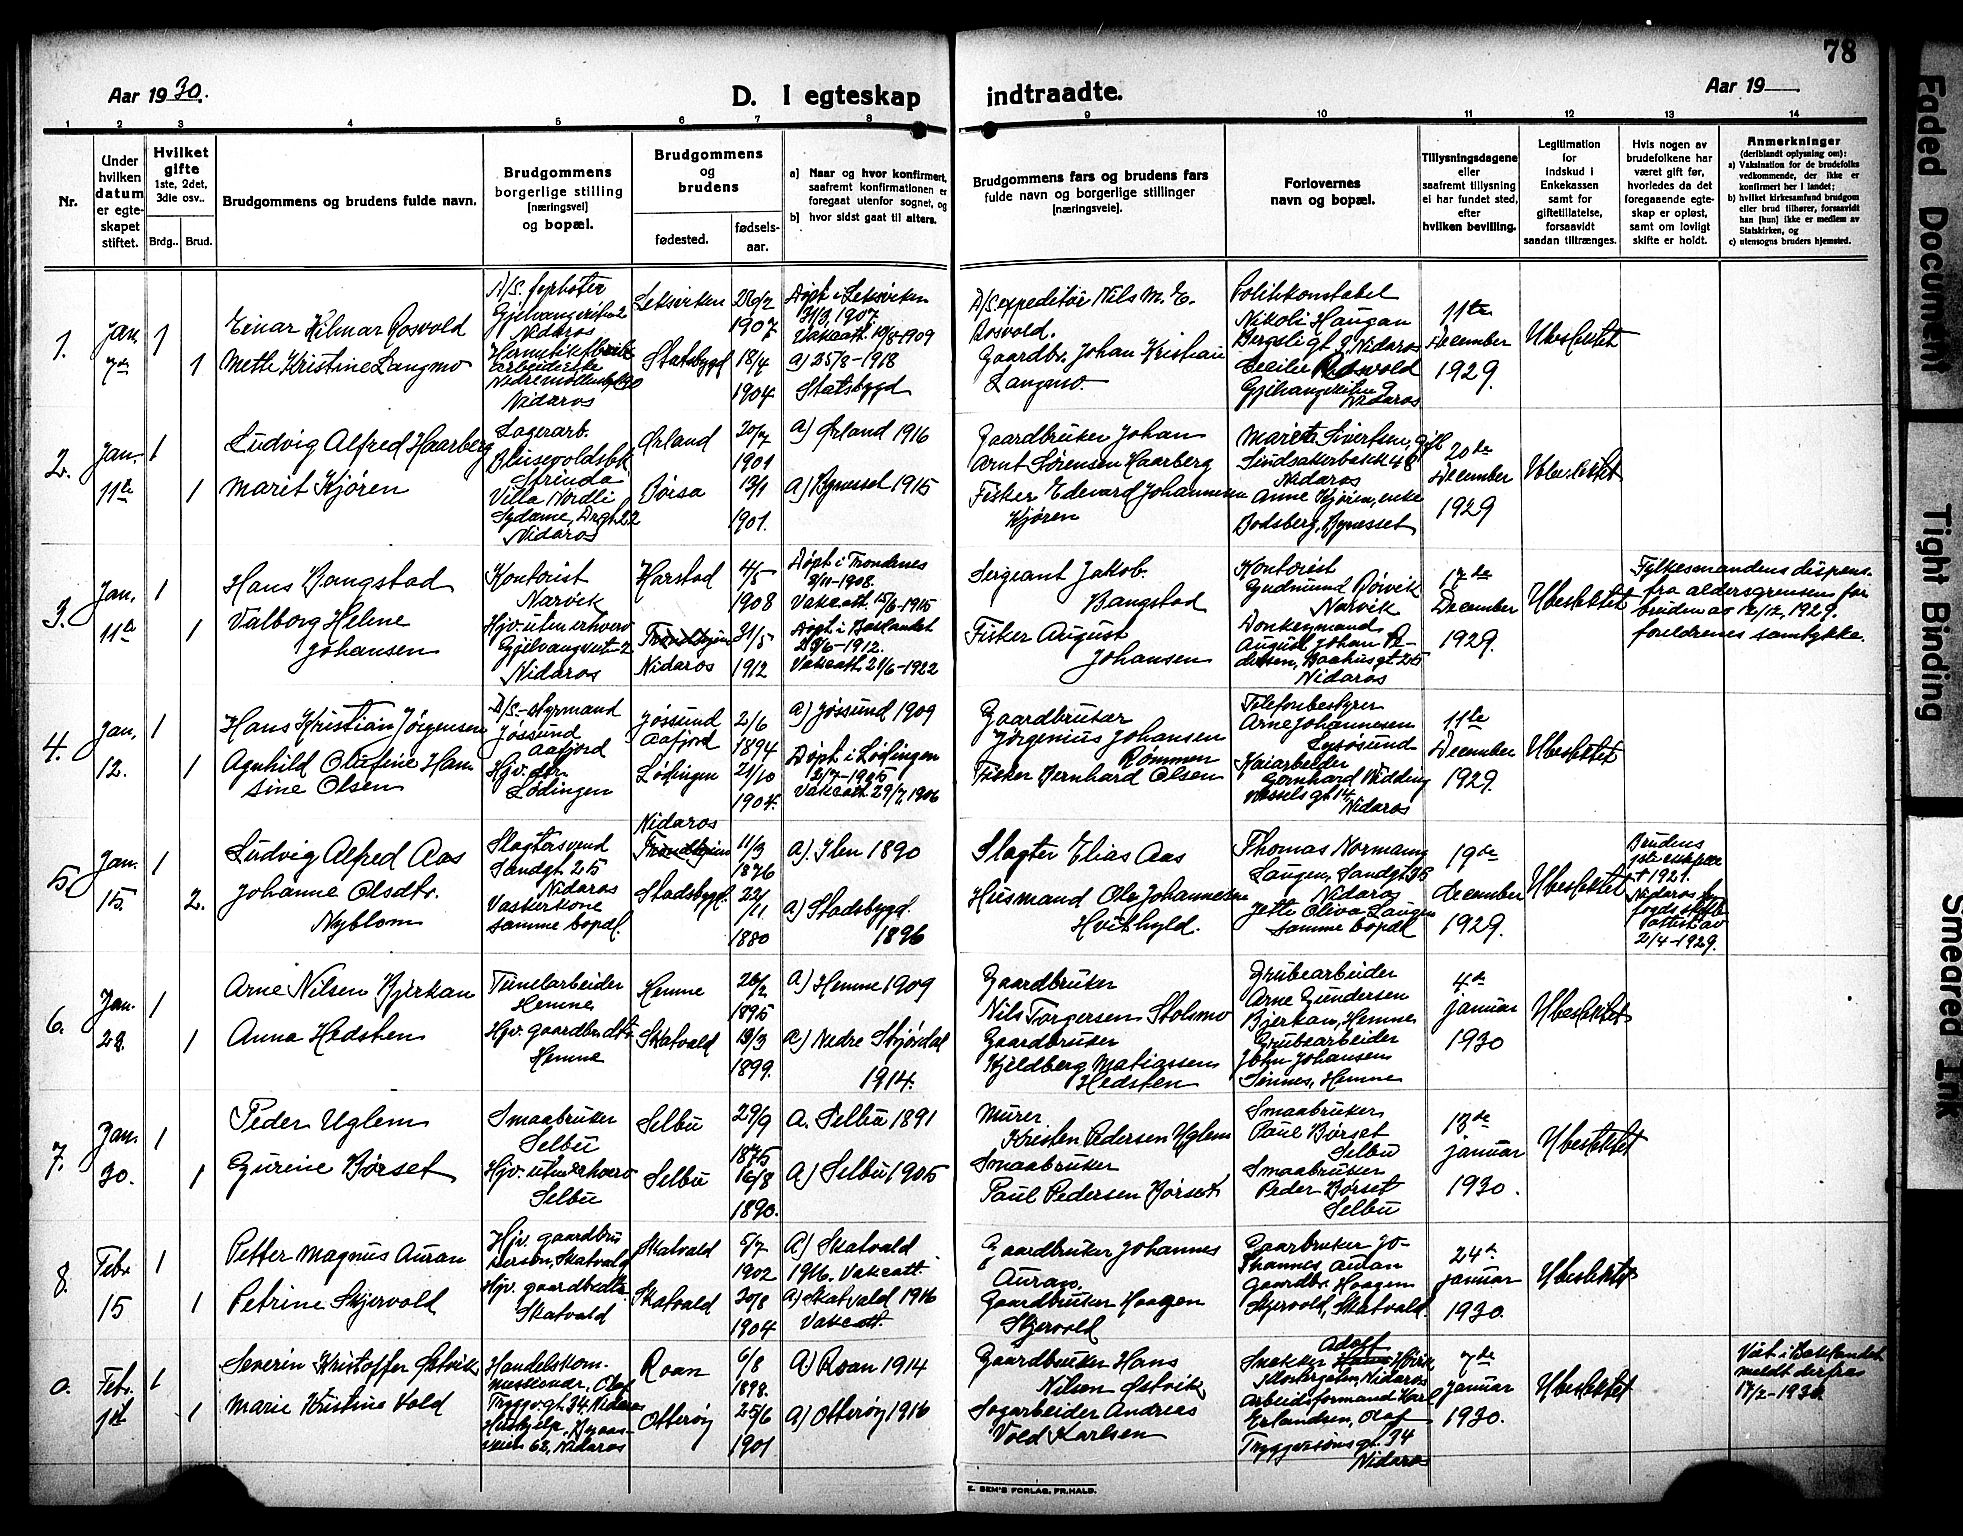 78
Aar 1930.
D. I egteskap
indtraadte.
Aar 19
1 2 3 4 5 6 7 8 9 10 11 12 13 14
Nr.
Under hvilken datum er egteskapet stiftet.
Hvilket gifte 1ste, 2det, 3die osv..
Brdg.. Brud.
Brudgommens og brudens fulde navn.
Brudgommens borgerlige stilling [næringsvei] og bopæl.
Brudgommens og brudens
fødested.
fødselsaar.
a) Naar og hvor konfirmert, saafremt konfirmationen er foregaat utenfor sognet, og
b) hvor sidst gaat til alters.
Brudgommens fars og brudens fars fulde navn og borgerlige stillinger [næringsveie].
Forlovernes navn og bopæl.
Tillysningsdagene eller saafremt tillysning ei har fundet sted, efter hvilken bevilling.
Legitimation for Indskud i Enkekassen samt for giftetillatelse, forsaavidt saadan tiltrænges.
Hvis nogen av brudefolkene har været gift før, hvorledes da det foregaaende egteskap er opløst, samt om lovligt skifte er holdt.
Anmerkninger
(deriblandt oplysning om):
a) Vaksination for de brudefolks vedkommende, der ikke er konfirmert her i landet;
b) hvilket kirkesamfund brudgom eller brud tilhører, forsaavidt han [hun] ikke er medlem av Statskirken, og
c) utensogns bruders hjemsted.
1. Jan. 7de 1
Einar Hilmar Rosvold
A/S. fyrbøter
Nidaros
Leksviken
26/2 1907
Døpt i Leksviken
31/3 1907
Vakcatt. 10/8-1909
D/S expeditør Nils M. E. Rosvold.
Politikonstabel
Nikoli Haugan
Bergsligt 9, Nidaros
11te December 1929.
Ubeslektet
1
Mette Kristine Langmo
Nidaros
Statsbygd
18/4 1904
a) 25/8-1918
Statsbygd
Gaardbr. Johan Kristian Langmo
Cecilie Rosvold
Nidaros
2. Jan. 11te 1
Ludvig Alfred Haarberg
Lagerarb.
Strinda
Ørland
20/7 1901
a) Ørland 1916
Gaardbruker Johan Arnt Sørensen Haarberg
Marieta Sivertsen, gjl
Sindsakerbakk 46
Nidaros
20de December 1929
Ubeslektet
1
Marit Kjøren
Villa Nordli
Sydame, Drgt 22
Nidaros
Børsa
13/1 1901.
a) Bynesset 1915
Fisker Edevard Johannesen Kjøren
Anne Kjøren, enke
Bodsberg, Bynesset
3. Jan. 11te 1
Hans Bangstad
Kontorist
Narvik
Harstad
4/5 1908
Døpt i Trondenes
8/11-1908.
Vakcatt. 15/6-1915
Sergeant Jakob. Bangstad
Kontorist
Gudmund Rørvik
Narvik
17de December 1929.
Ubeslektet
Fylkesmandens dispens. fra aldersgrensen for bruden av 12/12, 1929. foreldrenes samtykke.
1
Valborg Helene Johansen
Hjv. uten erhverv
Gjelvangvet. 2
Nidaros
Trondhjem
Nidaros
31/5 1912
Døpt i Baklandet
29/6-1912.
Vakcatt. 21/6-1922
Fisker August Johansen
Donkeymand
August Johan Pedersen, Baahusgt. 25
Nidaros
4. Jan. 12. 1
Hans Kristian Jørgensen
D/S.-styrmand
Jøssund
Aafjord
Jøssund
Aafjord
2/6 1894
a) Jøssund 1909
Gaardbruker
Jørgenius Johansen Rømmen
Telefonbestyrer
Arne Johannesen
Lysøsund
11te December 1929.
Ubeslektet
1
Agnhild Olufine Hansine Olsen
Hjv. dtr.
Lødingen
Lødingen
21/10 1904.
Døpt i Lødingen
2/7-1905
Vakcatt. 29/7, 1906
Fisker Bernhard Olsen
Kaiarbeider
Gernhard Vidding
Wesselsgt. 14
Nidaros
5 Jan. 15. 1
Ludvig Alfred Aas
Slagtersvend
Sandgt. 25
Nidaros
Nidaros
Trondhjem
11/3 1876
a). Ilen 1890
Slagter Elias Aas
Thomas Normann
Laugen, Sandgt. 25
Nidaros
19de December 1929.
Ubeslektet
Brudens
1921.
Nidaros
2/4-1929.
2.
Johanne Olsdtr. Nyblom
Vaskerkone
samme bopæl.
Stadsbygd.
22/11 1880
a) Stadsbygd. 1896
Husmand Ole Johannesen Hvithyld.
Jette Oliva Laugen
samme bopæl
6. Jan. 28. 1
Arne Nilsen Bjerkan
Tunelarbeider
Hemne
Hemne
26/2 1895
a) Hemne 1909
Gaardbruker
Nils Torgersen Stolsmo
Grubearbeider
Arne Gundersen
Bjerkan, Hemne
4de januar 1930
Ubeslektet
1
Anna Hedsten
Hjv. gaardbr.dtr.
Hemne
Skatvald
19/3 1899.
a) Nedre Stjørdal 1914.
Gaardbruker
Kjeldberg Matiassen Hedsten
Grubearbeider
John Johansen
Sinnes, Hemne
7. Jan. 30. 1
Peder Uglem
Smaabruker
Selbu
Selbu
29/9 1875
a. Selbu 1891
Murer
Kristen Pedersen Uglem
Smaabruker
Paul Børset
Selbu
13de januar 1930.
Ubeslektet
1
Gurine Børset
Hjv. uten erhverv
Selbu
Selbu
16/8 1890.
a) Selbu 1905
Smaabruker
Paul Pedersen Børset
Smaabruker
Peder Børset
Selbu
8. Febr 15 1
Petter Magnus Auran
Hjv. gaardbru
Skatvald
Skatvald
5/7 1902
a) Skatvald
1916. Vakcatt.
Gaardbruker Johannes Auran.
Gaarbruker Johannes Auran
24de januar 1930.
Ubeslektet
1
Petrine Skjervold
Hjv. gaardbr.dtr.
Skatvald
Skatvald
30/8 1904
a) Skatvald 1916
Vakcatt.
Gaardbruker Haagen Skjervold
Gaardbr. Haagen
Skjervold, Skatvald.
Febr. 1
Severin Kristoffer Østvik
Handelskom.
Olaf
Tryggv. gt. 34. Nidaros
Roan
6/8 1898.
a) Roan 1914
Gaardbruker Hans Nilsen Østvik
Adolf
Snekker Høvik
Klostergaten, Nidaros
7de januar 1930.
Ubeslektet
Viet i Baklandet
meldt derfra
17/2-1930
1
Marie Kristine Vold
Hushjelp
62, Nidaros
Otterøy
25/6 1901
a) Otterøy 1916
Sagarbeider Andreas Vold Karlsen
Arbeidsformand Karl
Erlandsen, Olaf
Tryggvesønsgt. 34
Nidaros
E. SEM'S FORLAG, FR.HALD.
Faded Document
Tight Binding
Smeared Ink